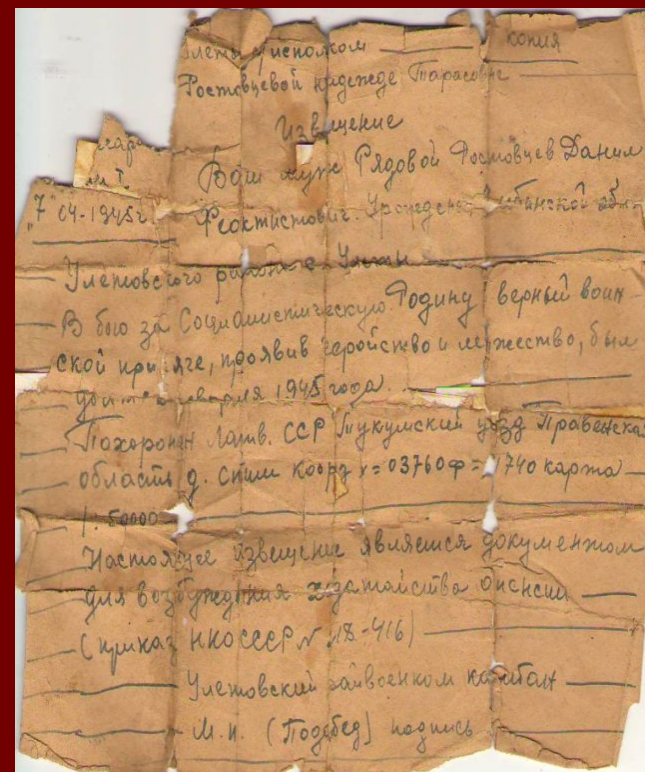 исполком копия
Ростовцевой Надежде Тарасовне
Извещение
Ваш муж Рядовой Ростовцев Данил
"7" 04-1945г. Феоктистович. Урожденец Читинской обл.
Улетовского района с. Улеты
В бою за Социалистическую Родину верный воин-
ской присяге, проявив геройство и мужество, был
января 1945 года.
Похоронен Латв. ССР Тукумский уезд
область д. х=03760 1740 карта
1:50000
Настоящее извещение является документом
для возбуждения хадатайства о пенсии
(приказ НКОСССР N 18-416)
Улетовский райвоенком капитан
М.п. (Подобед) подпись